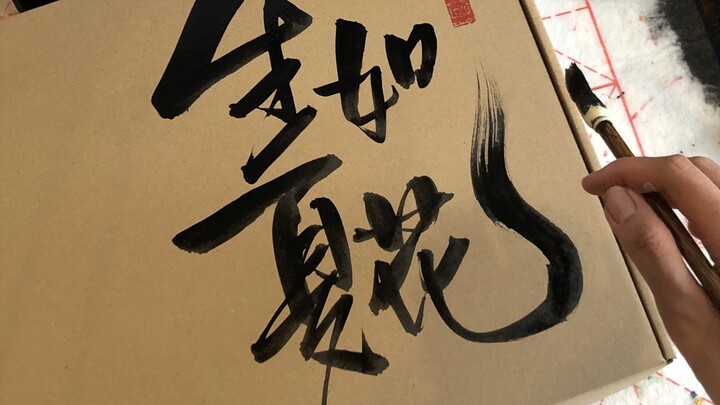 生如
夏花